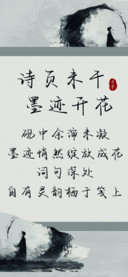 诗页未干
墨迹开花
砚中余萍未凝
墨迹悄然绽放成花
词句深处
自有灵韵栖于笺上